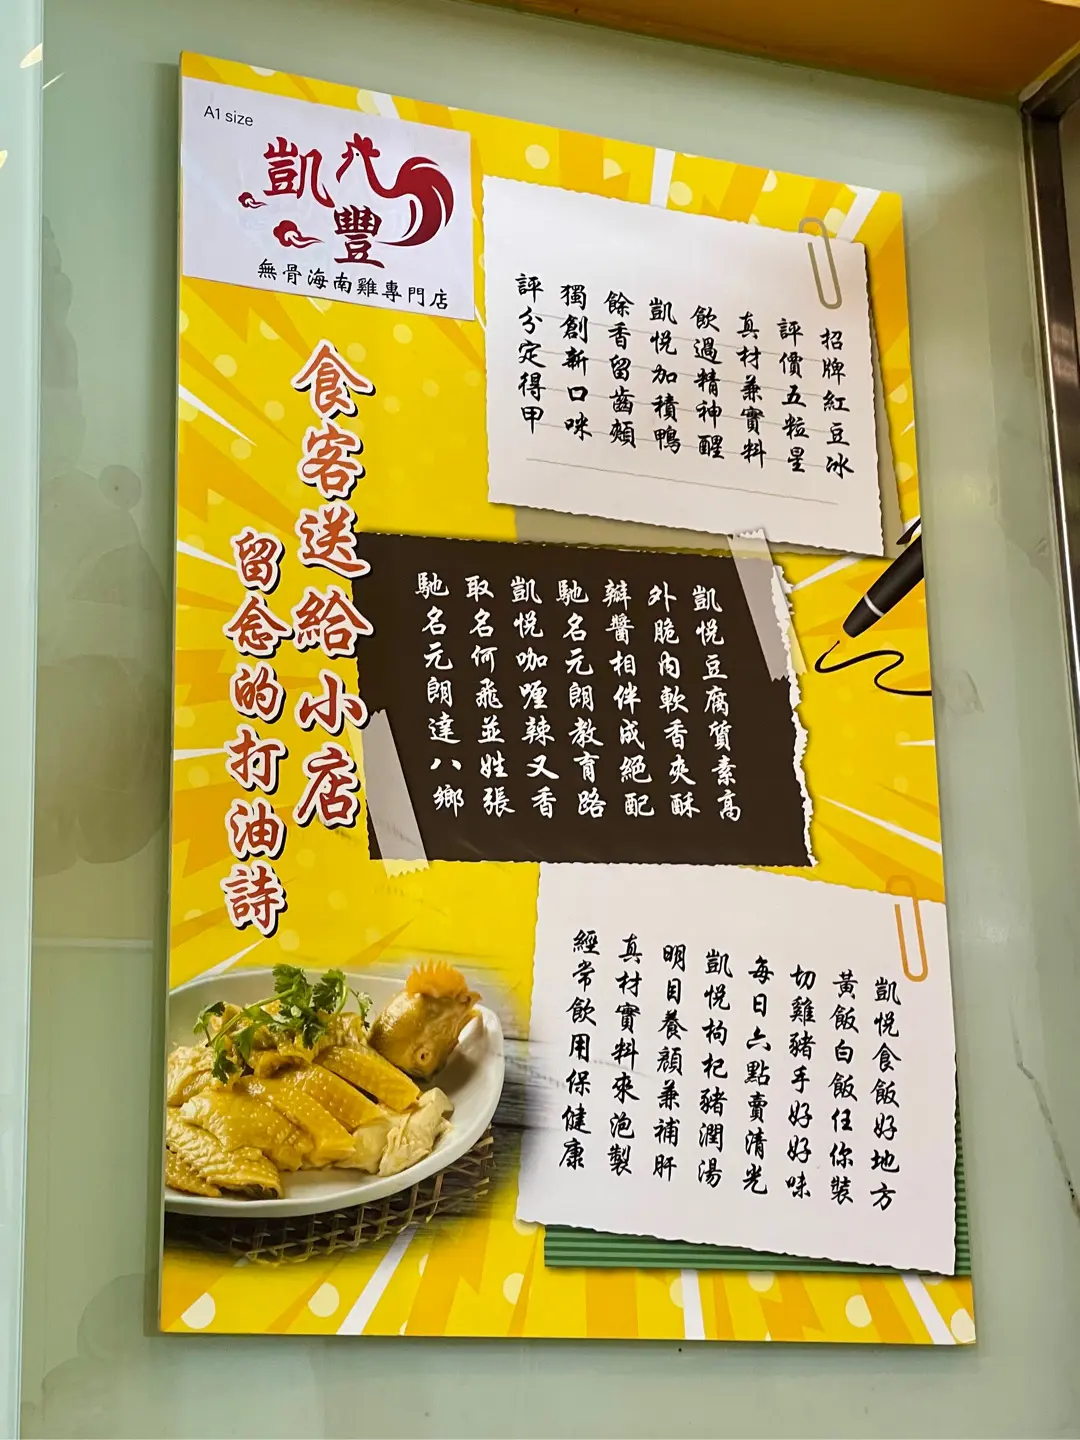 A1 size
凱豐
無骨海南雞專門店
食客送給小店
留念的打油詩
招牌紅豆冰
評價五粒星
真材兼實料
飲過精神醒
凱悅加積鴨
餘香留齒頰
獨創新口味
評分定得甲
凱悅豆腐質素高
外脆內軟香夾酥
辦醬相伴成絕配
馳名元朗教育路
凱悅咖喱辣又香
取名何飛並姓張
馳名元朗達八鄉
凱悅食飯好地方
黃飯白飯任你裝
切雞豬手好好味
每日六點賣清光
凱悅枸杞豬潤湯
明目養顏兼補肝
真材實料來泡製
經常飲用保健康